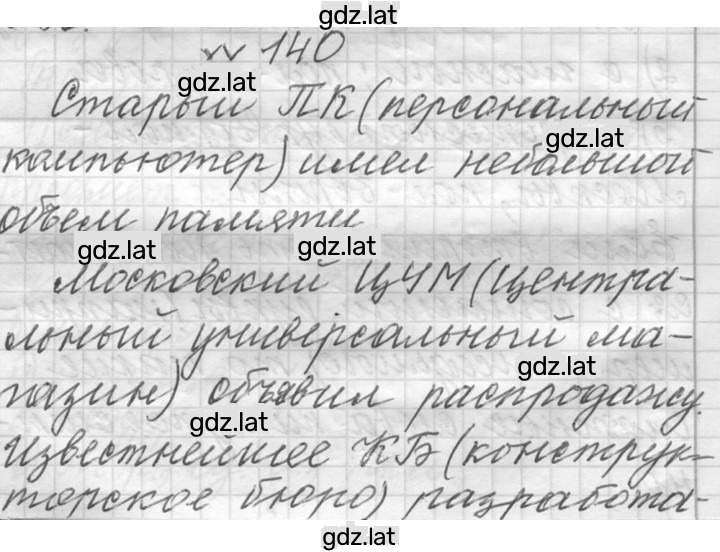 gdz.lat
№ 140
gdz.lat
Старый ПК (персональный
gdz.lat
компьютер) имел небольшой
объем памяти
gdz.lat gdz.lat
Московский ЦУМ (центра-
льный универсальный ма-
gdz.lat
газин) объявил распродажу.
gdz.lat
Известнейшее КБ (конструк-
торское бюро) разработа-
gdz.lat